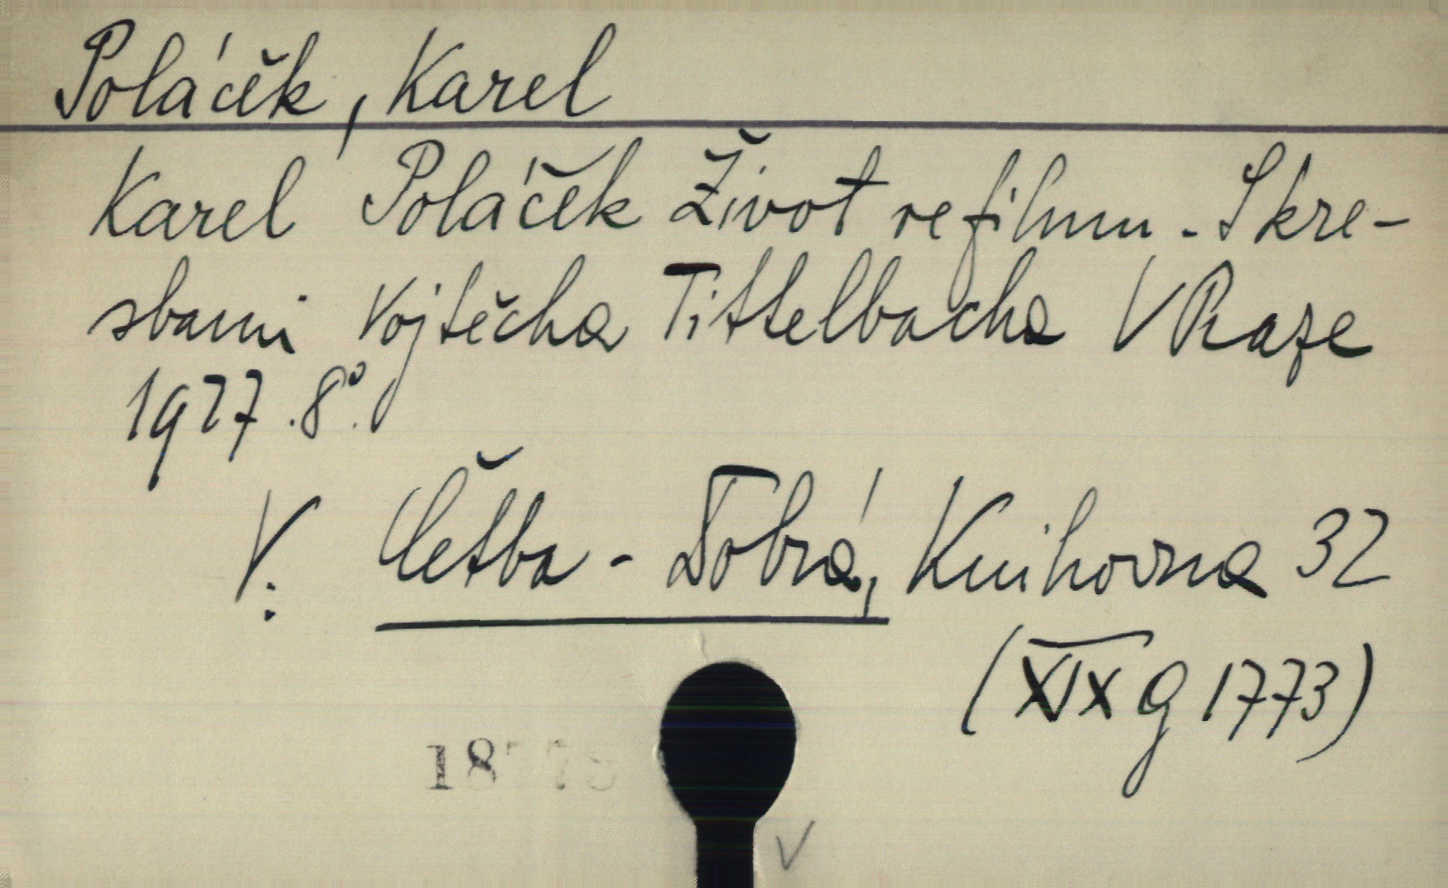 Poláček, Karel
Karel Poláček Život ve filmu. S kre-
sbami Vojtěcha Tittelbacha V Praze
1927. 8°.
V: Četba - Dobrá, Knihovna 32
(XIX g 1773)
V